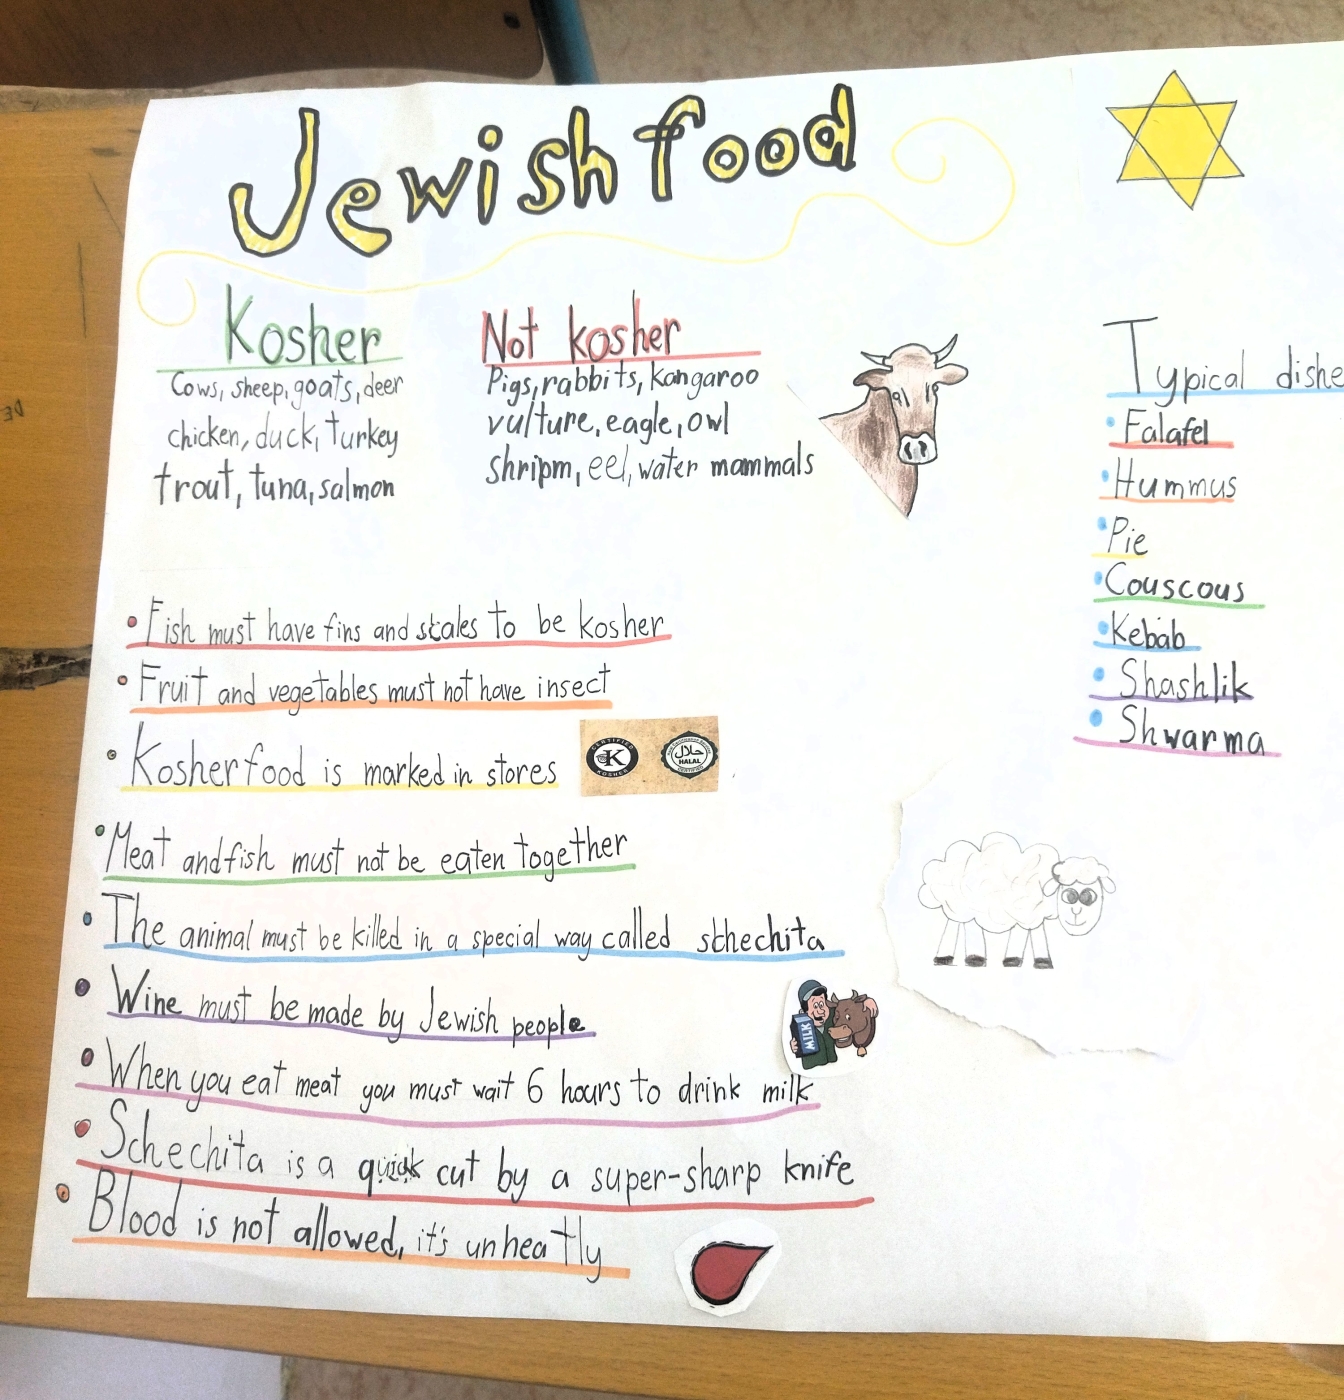 Jewish food
Kosher
Cows, sheep, goats, deer
chicken, duck, turkey
trout, tuna, salmon
Not kosher
Pigs, rabbits, kangaroo
vulture, eagle, owl
shripm, eel, water mammals
Typical dishe
Falafel
Hummus
Pie
Couscous
Kebab
Shashlik
Shwarma
• Fish must have fins and scales to be kosher
• Fruit and vegetables must not have insect
• Kosher food is marked in stores
CERTIFIED
K
KOSHER
حلال
HALAL
• Meat and fish must not be eaten together
• The animal must be killed in a special way called schechita
• Wine must be made by Jewish people
MILK
• When you eat meat you must wait 6 hours to drink milk
• Schechita is a quick cut by a super-sharp knife
• Blood is not allowed, it's unheatly